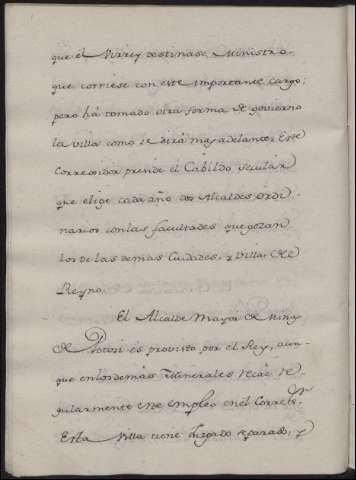 que el Virrey destinase Ministro
que corriese con este importante cargo;
pero há tomado otra forma de govierno
la villa como se dirá mas adelante. Este
Corregidor preside el Cabildo secular
que elige cada año dos Alcaldes ordi
narios con las facultades que gozan
los de las demas Ciudades, y Villas del
Reyno.
El Alcalde Mayor de Minas
de Potosi es provisto por el Rey, aun-
que en los demás Minerales recáe re-
gularmente este empleo en el Correg.or
Esta Villa tiene Juzgado separado, y